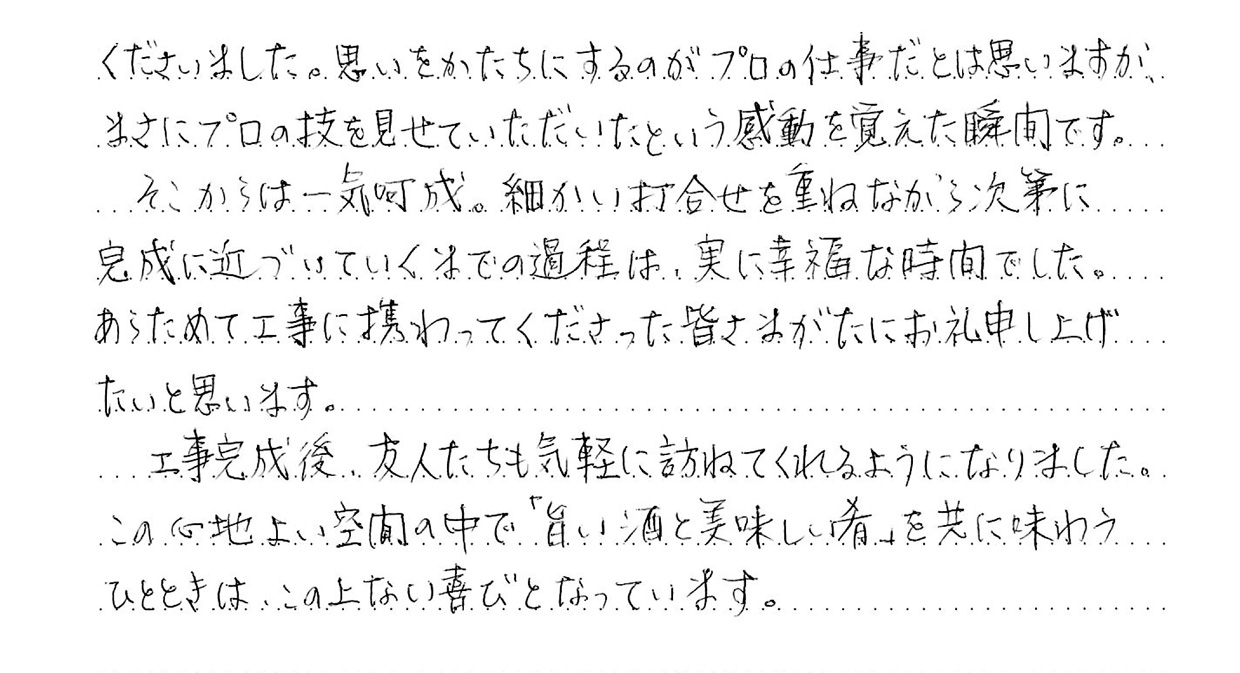 くださいました。思いをかたちにするのがプロの仕事だとは思いますが、
まさにプロの技を見せていただいたという感動を覚えた瞬間です。
そこからは一気呵成。細かい打合せを重ねながら次第に
完成に近づいていくまでの過程は、実に幸福な時間でした。
あらためて工事に携わってくださった皆さまがたにお礼申し上げ
たいと思います。
工事完成後、友人たちも気軽に訪ねてくれるようになりました。
この心地よい空間の中で「旨い酒と美味しい肴」を共に味わう
ひとときは、この上ない喜びとなっています。